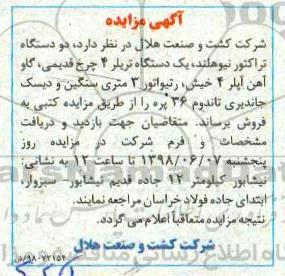 آگهی مزایده
شرکت کشت و صنعت هلال در نظر دارد، دو دستگاه
تراکتور نیوهلند، یک دستگاه تریلر ۴ چرخ قدیمی، گاو
آهن آپلر ۴ خیش، رتیواتور ۳ متری سنگین و دیسک
جاندیری تاندوم ۳۶ پره را از طریق مزایده کتبی به
فروش برساند. متقاضیان جهت بازدید و دریافت
مشخصات و فرم شرکت در مزایده روز
پنجشنبه ۱۳۹۸/۰۶/۰۷ تا ساعت ۱۲ به نشانی:
نیشابور کیلومتر ۱۲ جاده قدیم نیشابور- سبزوار،
ابتدای جاده فولاد خراسان مراجعه نمایند.
نتیجه مزایده متعاقباً اعلام می گردد.
شرکت کشت و صنعت هلال
۹۸۰۷۲۱۵۴